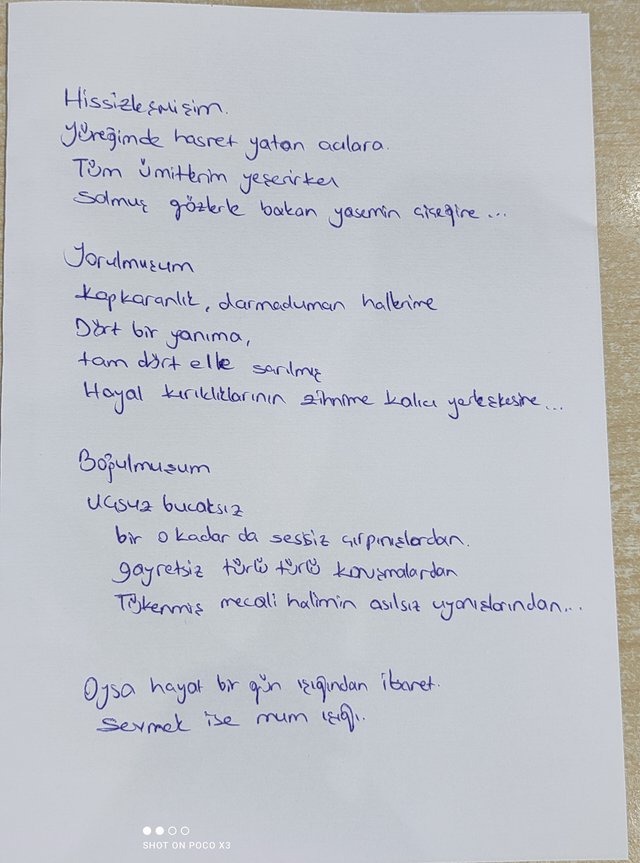 Hissizleşmişim.
Yüreğimde hasret yatan acılara.
Tüm ümitlerim yeşerirken
Solmuş gözlerle bakan yasemin çiçeğine...
Yorulmuşum
Kapkaranlık, darmaduman hallerime
Dört bir yanıma,
tam dört elle sarılmış
Hayal kırıklıklarının zihnime kalıcı yerleşkesine...
Boğulmuşum
uçsuz bucaksız
bir o kadar da sessiz çırpınışlardan.
gayretsiz türlü türlü konuşmalardan
Tükenmiş mecali halimin asılsız uyanışlarından...
Oysa hayat bir gün ışığından ibaret.
Sevmek ise mum ışığı.
SHOT ON POCO X3